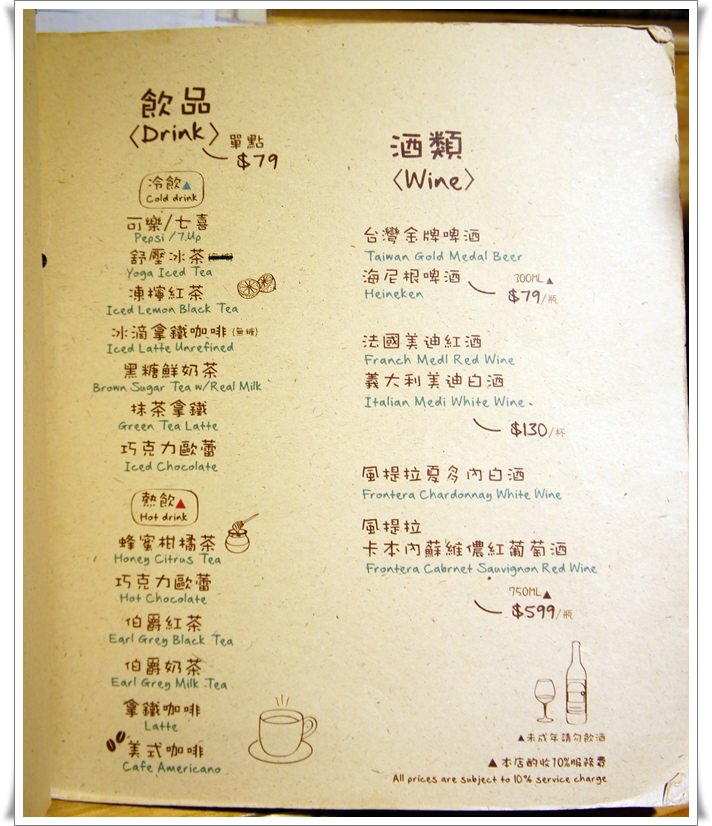 飲品
〈Drink〉
單點
$79
冷飲▲
Cold drink
可樂/七喜
Pepsi / 7.Up
舒壓冰茶
Yoga Iced Tea
凍檸紅茶
Iced Lemon Black Tea
冰滴拿鐵咖啡(無糖)
Iced Latte Unrefined
黑糖鮮奶茶
Brown Sugar Tea w/Real Milk
抹茶拿鐵
Green Tea Latte
巧克力歐蕾
Iced Chocolate
熱飲▲
Hot drink
蜂蜜柑橘茶
Honey Citrus Tea
巧克力歐蕾
Hot Chocolate
伯爵紅茶
Earl Grey Black Tea
伯爵奶茶
Earl Grey Milk Tea
拿鐵咖啡
Latte
美式咖啡
Cafe Americano
酒類
〈Wine〉
台灣金牌啤酒
Taiwan Gold Medal Beer
海尼根啤酒
Heineken
300ML▲
$79/瓶
法國美迪紅酒
Franch Medl Red Wine
義大利美迪白酒
Italian Medi White Wine
$130/杯
風提拉夏多內白酒
Frontera Chardonnay White Wine
風提拉
卡本內蘇維儂紅葡萄酒
Frontera Cabrnet Sauvignon Red Wine
750ML▲
$599/瓶
▲未成年請勿飲酒
▲本店酌收10%服務費
All prices are subject to 10% service charge